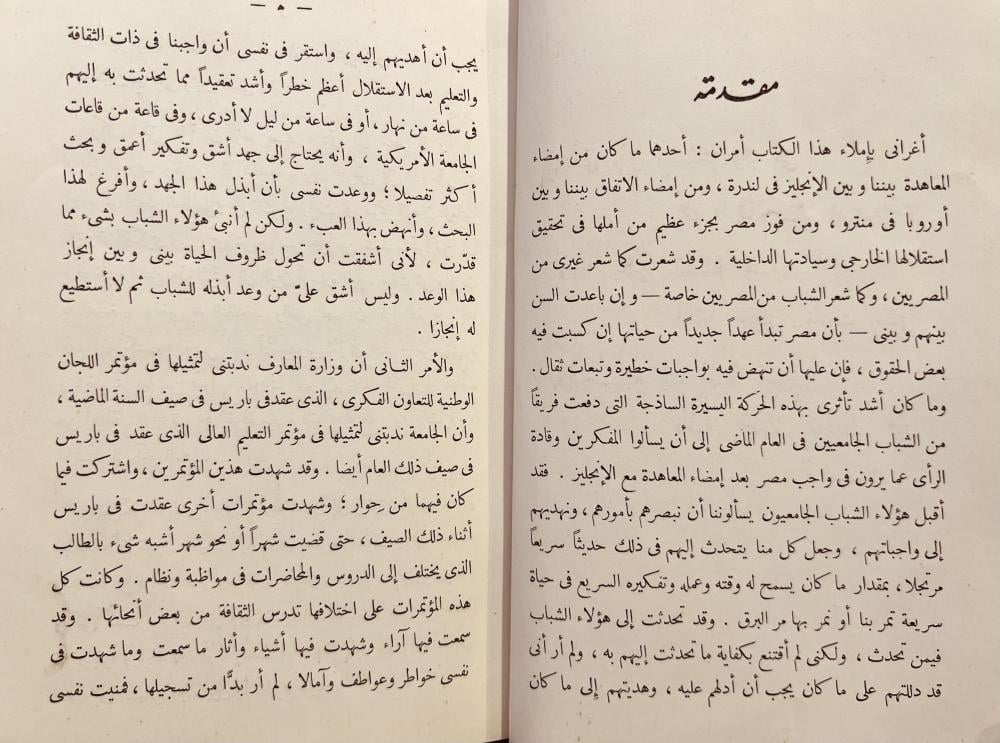 مقدمة
أغرانى بإملاء هذا الكتاب أمران : أحدهما ما كان من إمضاء
المعاهدة بيننا وبين الإنجليز فى لندرة ، ومن إمضاء الاتفاق بيننا وبين
أوروبا فى منترو ، ومن فوز مصر بجزء عظيم من أملها فى تحقيق
استقلالها الخارجى وسيادتها الداخلية . وقد شعرت كما شعر غيرى من
المصريين ، وكما شعر الشباب من المصريين خاصة — وإن باعدت السن
بينهم وبينى — بأن مصر تبدأ عهداً جديداً من حياتها إن كسبت فيه
بعض الحقوق ، فإن عليها أن تنهض فيه بواجبات خطيرة وتبعات ثقال .
وما كان أشد تأثرى بهذه الحركة اليسيرة الساذجة التى دفعت فريقاً
من الشباب الجامعيين فى العام الماضى إلى أن يسألوا المفكرين وقادة
الرأى عما يرون فى واجب مصر بعد إمضاء المعاهدة مع الإنجليز . فقد
أقبل هؤلاء الشباب الجامعيون يسألوننا أن نبصرهم بأمورهم ، ونهديهم
إلى واجباتهم ، وجعل كل منا يتحدث إليهم فى ذلك حديثاً سريعاً
مرتجلا ، بمقدار ما كان يسمح له وقته وعمله وتفكيره السريع فى حياة
سريعة تمر بنا أو نمر بها مر البرق . وقد تحدثت إلى هؤلاء الشباب
فيمن تحدث ، ولكنى لم أقتنع بكفاية ما تحدثت إليهم به ، ولم أر أنى
قد دللتهم على ما كان يجب أن أدلهم عليه ، وهديتهم إلى ما كان
— ٥ —
يجب أن أهديهم إليه ، واستقر فى نفسى أن واجبنا فى ذات الثقافة
والتعليم بعد الاستقلال أعظم خطراً وأشد تعقيداً مما تحدثت به إليهم
فى ساعة من نهار ، أو فى ساعة من ليل لا أدرى ، وفى قاعة من قاعات
الجامعة الأمريكية ، وأنه يحتاج إلى جهد أشق وتفكير أعمق وبحث
أكثر تفصيلا ؛ ووعدت نفسى بأن أبذل هذا الجهد ، وأفرغ لهذا
البحث ، وأنهض بهذا العبء . ولكن لم أنبئ هؤلاء الشباب بشىء مما
قدّرت ، لأنى أشفقت أن تحول ظروف الحياة بينى وبين إنجاز
هذا الوعد . وليس أشق علىّ من وعد أبذله للشباب ثم لا أستطيع
له إنجازا .
والأمر الثانى أن وزارة المعارف ندبتنى لتمثيلها فى مؤتمر اللجان
الوطنية للتعاون الفكرى ، الذى عقد فى باريس فى صيف السنة الماضية ،
وأن الجامعة ندبتنى لتمثيلها فى مؤتمر التعليم العالى الذى عقد فى باريس
فى صيف ذلك العام أيضا . وقد شهدت هذين المؤتمرين ، واشتركت فيما
كان فيهما من حِوار ؛ وشهدت مؤتمرات أخرى عقدت فى باريس
أثناء ذلك الصيف ، حتى قضيت شهراً أو نحو شهر أشبه شىء بالطالب
الذى يختلف إلى الدروس والمحاضرات فى مواظبة ونظام . وكانت كل
هذه المؤتمرات على اختلافها تدرس الثقافة من بعض أنحائها . وقد
سمعت فيها آراء وشهدت فيها أشياء وأثار ما سمعت وما شهدت فى
نفسى خواطر وعواطف وآمالا ، لم أر بدًّا من تسجيلها ، فمنيت نفسى